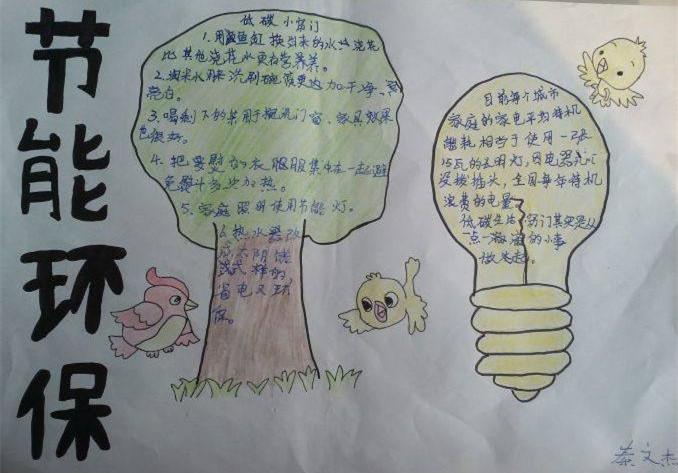 节能环保
低碳小窍门
1.用鱼缸换出来的水浇花
比其他浇花水更有营养。
2.淘米水用来洗刷碗筷更加干净、
亮白。
3.喝剩下的茶用于擦洗门窗、家具效果
色很好。
4.把要熨的衣服集中在一起避
免熨斗多次加热。
5.家庭照明使用节能灯。
6.热水器改
成太阳能
式样的
省电又环
保。
目前每个城市
家庭的家电平均待机
能耗相当于使用一
15瓦的长明灯,因电器
没拔插头,全国每年待机
浪费的电量
低碳生活窍门其实是从
一点一滴的小事
做起。
蔡文杰